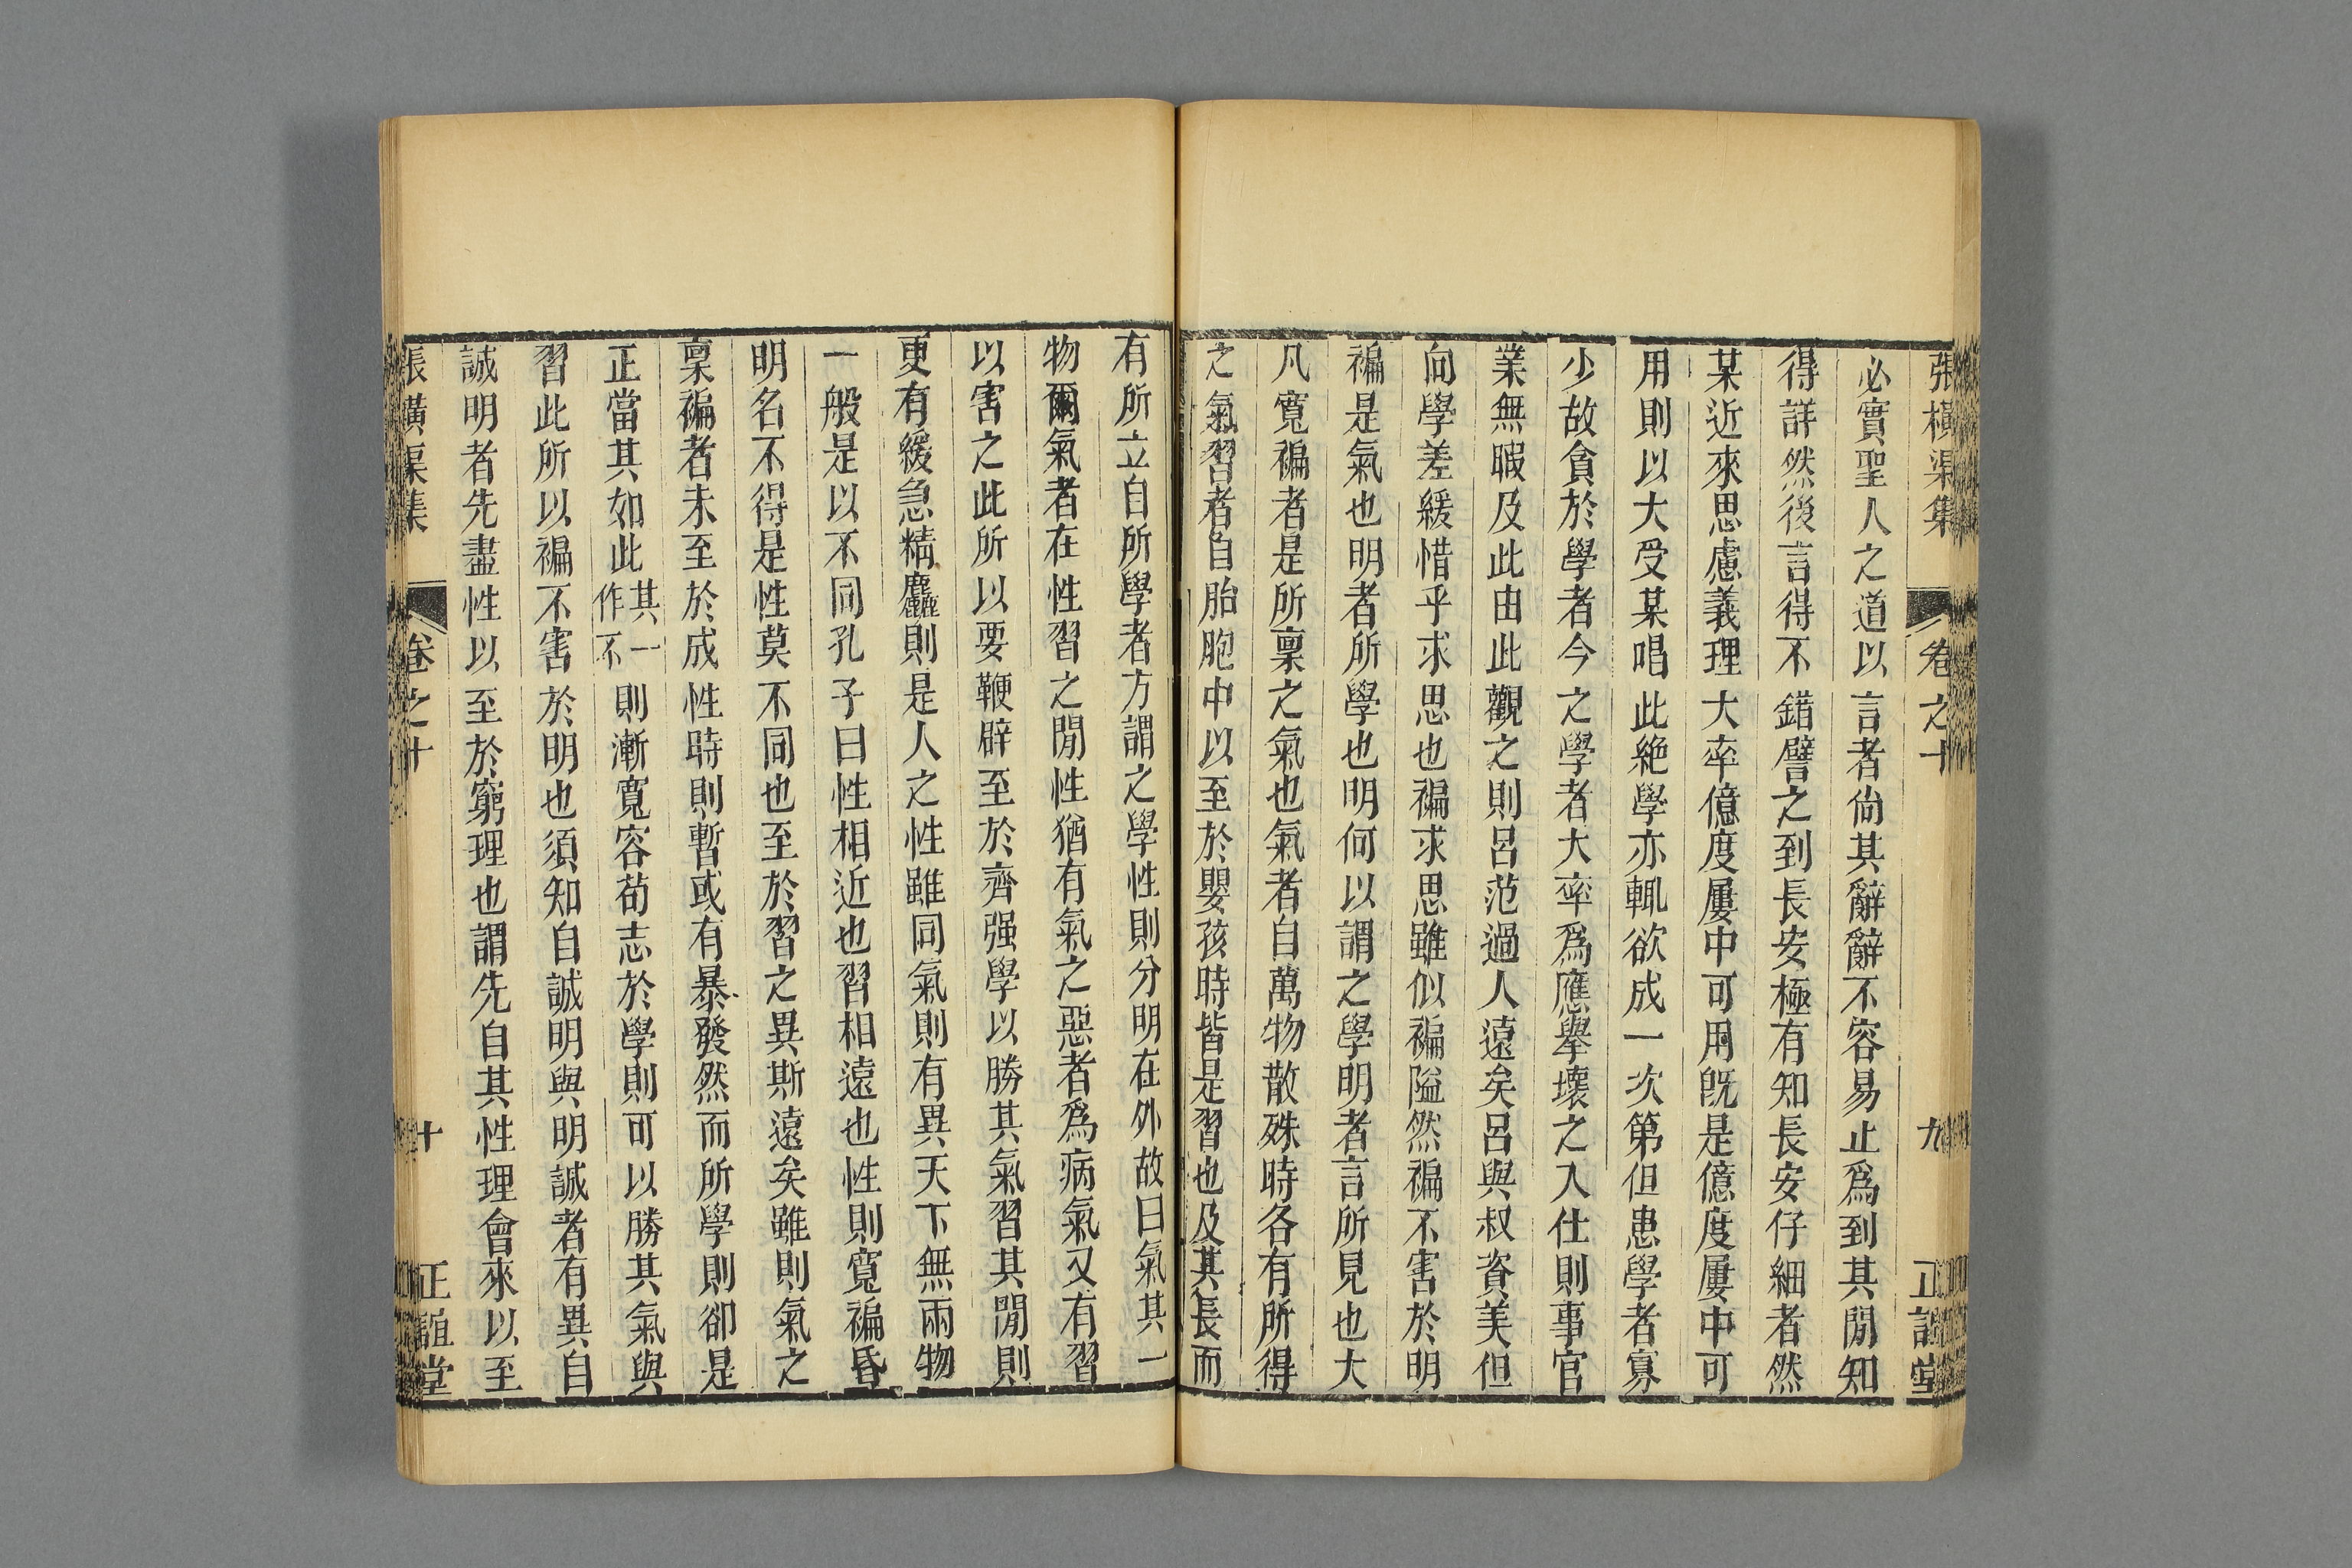 張橫渠集 卷之十 九 正誼堂
必實聖人之道以言者尙其辭辭不容易止爲到其閒知
得詳然後言得不錯譬之到長安極有知長安仔細者然
某近來思慮義理大率億度屢中可用旣是億度屢中可
用則以大受某唱此絶學亦輒欲成一次第但患學者寡
少故貪於學者今之學者大率爲應舉壞之入仕則事官
業無暇及此由此觀之則呂范過人遠矣呂與叔資美但
向學差緩惜乎求思也褊求思雖似褊隘然褊不害於明
褊是氣也明者所學也明何以謂之學明者言所見也大
凡寬褊者是所稟之氣也氣者自萬物散殊時各有所得
之氣習者自胎胞中以至於嬰孩時皆是習也及其長而
有所立自所學者方謂之學性則分明在外故曰氣其一
物爾氣者在性習之閒性猶有氣之惡者爲病氣又有習
以害之此所以要鞭辟至於齊强學以勝其氣習其閒則
更有緩急精麤則是人之性雖同氣則有異天下無兩物
一般是以不同孔子曰性相近也習相遠也性則寬褊昏
明名不得是性莫不同也至於習之異斯遠矣雖則氣之
稟褊者未至於成性時則暫或有暴發然而所學則卻是
正當其如此其一作不則漸寬容苟志於學則可以勝其氣與
習此所以褊不害於明也須知自誠明與明誠者有異自
誠明者先盡性以至於窮理也謂先自其性理會來以至
張橫渠集 卷之十 十 正誼堂